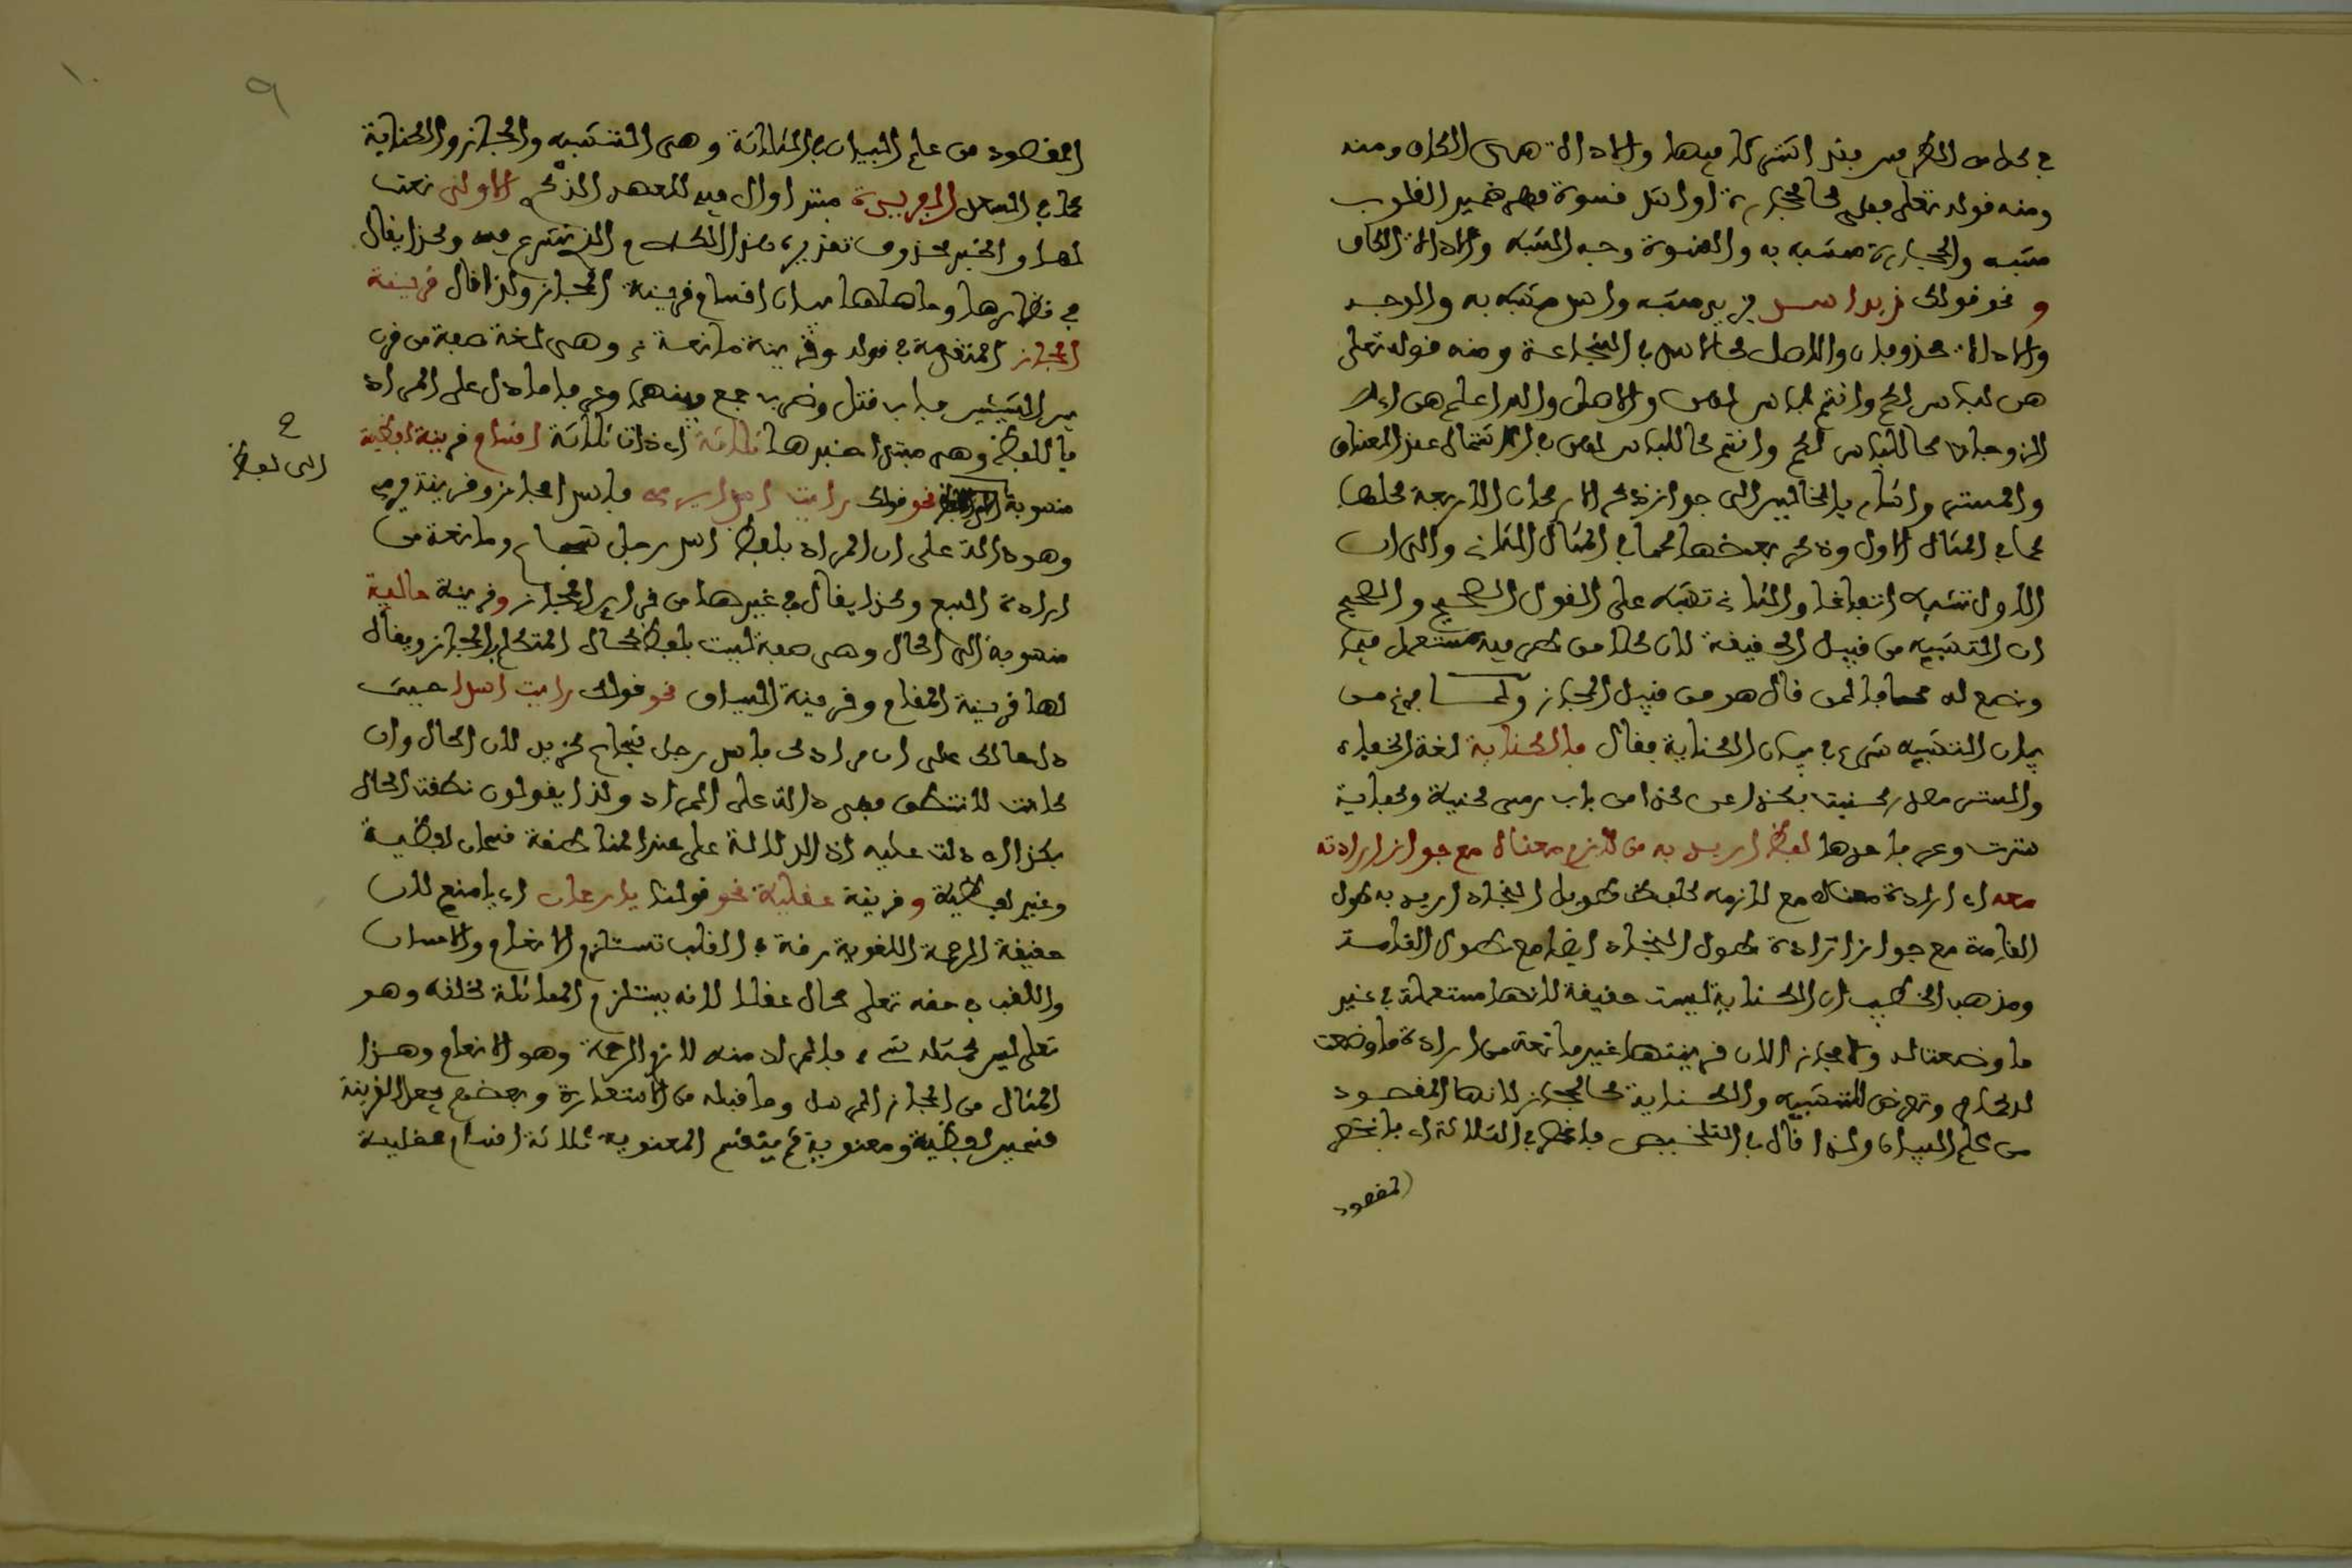 في كل من الطرفين فقد اشتركا فيها والاداة هى الكاف ومنه
ومنه قوله تعلى فهي كالحجارة او اشد قسوة فهى ضمير القلوب
مشبه والحجارة مشبه به والقسوة وجه الشبه والاداة الكاف
و نحو قولك زيد اسد زيد مشبه واسد مشبه به والوجه
والاداة محذوفان والاصل كالاسد في الشجاعة ومنه قوله تعلى
هن لباس لكم وانتم لباس لهن والاصل والله اعلم هن اى
الزوجات كاللباس لكم وانتم كاللباس لهن في الاشتمال عند المعناق
والستر واشار بالمثالين الى جواز ذكر الاركان الاربعة كلها
كما في المثال الاول وذكر بعضها كما في المثال الثاني والى ان
الاول تشبيه اتفاقا والثاني تشبيه على القول الصحيح والصحيح
ان التشبيه من قبيل الحقيقة لان كلا من طرفيه مستعمل فيما
وضع له خلافا لمن قال هو من قبيل المجاز ولما فرغ من
بيان التشبيه شرع في بيان الكناية فقال فالكناية لغة الخفاء
والستر مصدر كنيت بكذا عن كذا من باب رمى كنية وكفاية
سترت وعرفا حدها لفظ اريد به من لازم معناه مع جواز ارادته
معه اى ارادة معناه مع لازمه كلفظ طويل النجاد اريد به طول
القامة مع جواز ارادة طول النجاد ايضا مع طول القامة
ومذهب الخطيب ان الكناية ليست حقيقة لانها مستعملة في غير
ما وضعت له ولا مجاز الان قرينتها غير مانعة من ارادة ما وضعت
له وتعرض للتشبيه والكناية كالمجاز لانها المقصود
من علم البيان ولذا قال في التلخيص فانحصر في الثلاثة اى فانحصر
المقصود
المقصود من علم البيان في الثلاثة وهى التشبيه والمجاز والكناية
كما في السعد القرينة مبتدا وال فيه للعهد الذكرى الاولى نعت
لها والخبر محذوف تقديره هذا الكلام الذى نشرع فيه وكذا يقال
في نظائرها وحاصلها بيان اقسام قرينة المجاز ولذا قال قرينة
المجاز المتقدمة في قوله وقرينة مانعة وهى لغة صفة من قرن
بين الشيئين من باب قتل وضرب جمع بينهما وعرفا ما دل على المراد
باللفظ وهى مبتدا خبرها ثلاثة اى ذات ثلاثة اقسام قرينة لفظية
منسوبة نحو قولك رايت اسدا يرمى فاسد مجاز وقرينة يرمى
الى لفظ
وهو دالة على ان المراد بلفظ اسد رجل شجاع ومانعة من
ارادة السبع وكذا يقال في غيرها من قراين المجاز وقرينة حالية
منسوبة الى الحال وهى صفة ليست بلفظ كحال المتكلم بالمجاز ويقال
لها قرينة المقام وقرينة السياق نحو قولك رايت اسدا حيث
دل حالك على ان مرادك باسد رجل شجاع كزيد لان الحال وان
كانت لا تنطق فهى دالة على المراد ولذا يقولون نطقت الحال
بكذا اى دلت عليه اذ الدلالة على عند المناطقة قسمان لفظية
وغير لفظية و قرينة عقلية نحو قولنا يارحمان اى يا منعم لان
حقيقة الرحمة اللغوية رقة في القلب تستلزم الانعام والاحسان
والقلب في حقه تعلى محال عقلا لانه يستلزم المماثلة لخلقه وهو
تعلى ليس كمثله شيء فالمراد منه لازم الرحمة وهو الانعام وهذا
المثال من المجاز المرسل وما قبله من الاستعارة وبعضهم جعل القرينة
قسمين لفظية ومعنوية ثم يقسم المعنوية ثلاثة اقسام عقلية